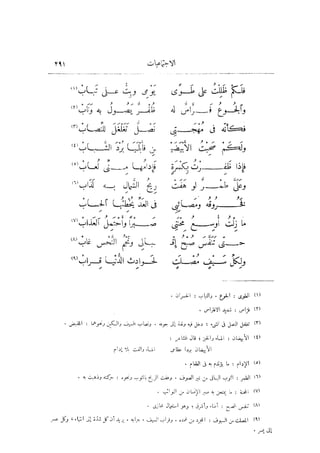 الاجتماعيات ٢٩١
فلكم ظللت على طوى يومى وبت على تباب (١)
والجوع فراس له ظفر يصول به وناب (٢)
فكأنه فى مهجتى نصل تغلغل للنصاب (٣)
ولكم صحبت الأبيضين فأبليا برد الشباب (٤)
فإذا ظفرت بكسرة فإدامها منى لعاب (٥)
وعلى طمر لو هفت ريح الشمال به لذاب (٦)
فخروقه ومصائبى فى العد يخطئها الحساب
ما زلت أوسع محنتى صبرا وأحتمل العذاب (٧)
حتى تنفس صبح إقبالى ونجم النحس غاب (٨)
ولكل سيف مصلت لحوادث الدنيا قراب (٩)
(١) الطوى : الجوع . والتباب : الخسران .
(٢) فراس : شديد الافتراس .
(٣) تغلغل النصل فى الشىء : دخل فيه ونفذ إلى جوفه . ونصاب السيف والسكين ونحوهما : المقبض .
(٤) الأبيضان : الماء والخبز ؛ قال الشاعر :
الأبيضان بردا عظامى الماء والفث بلا إدام
(٥) الإدام : ما يؤتدم به فى الطعام .
(٦) الطمر : الثوب البالى من غير الصوف . وهفت الريح بالثوب ونحوه : حركته وذهبت به .
(٧) المحنة : ما يمتحن به صبر الإنسان من النوائب .
(٨) تنفس الصبح : أضاء وأشرق ، وهو استعمال مجازى .
(٩) المصلت من السيوف : المجرد من غمده . وقراب السيف : جرابه . يريد أن كل شدة إلى انتهاء ، وكل عسر
إلى يسر .